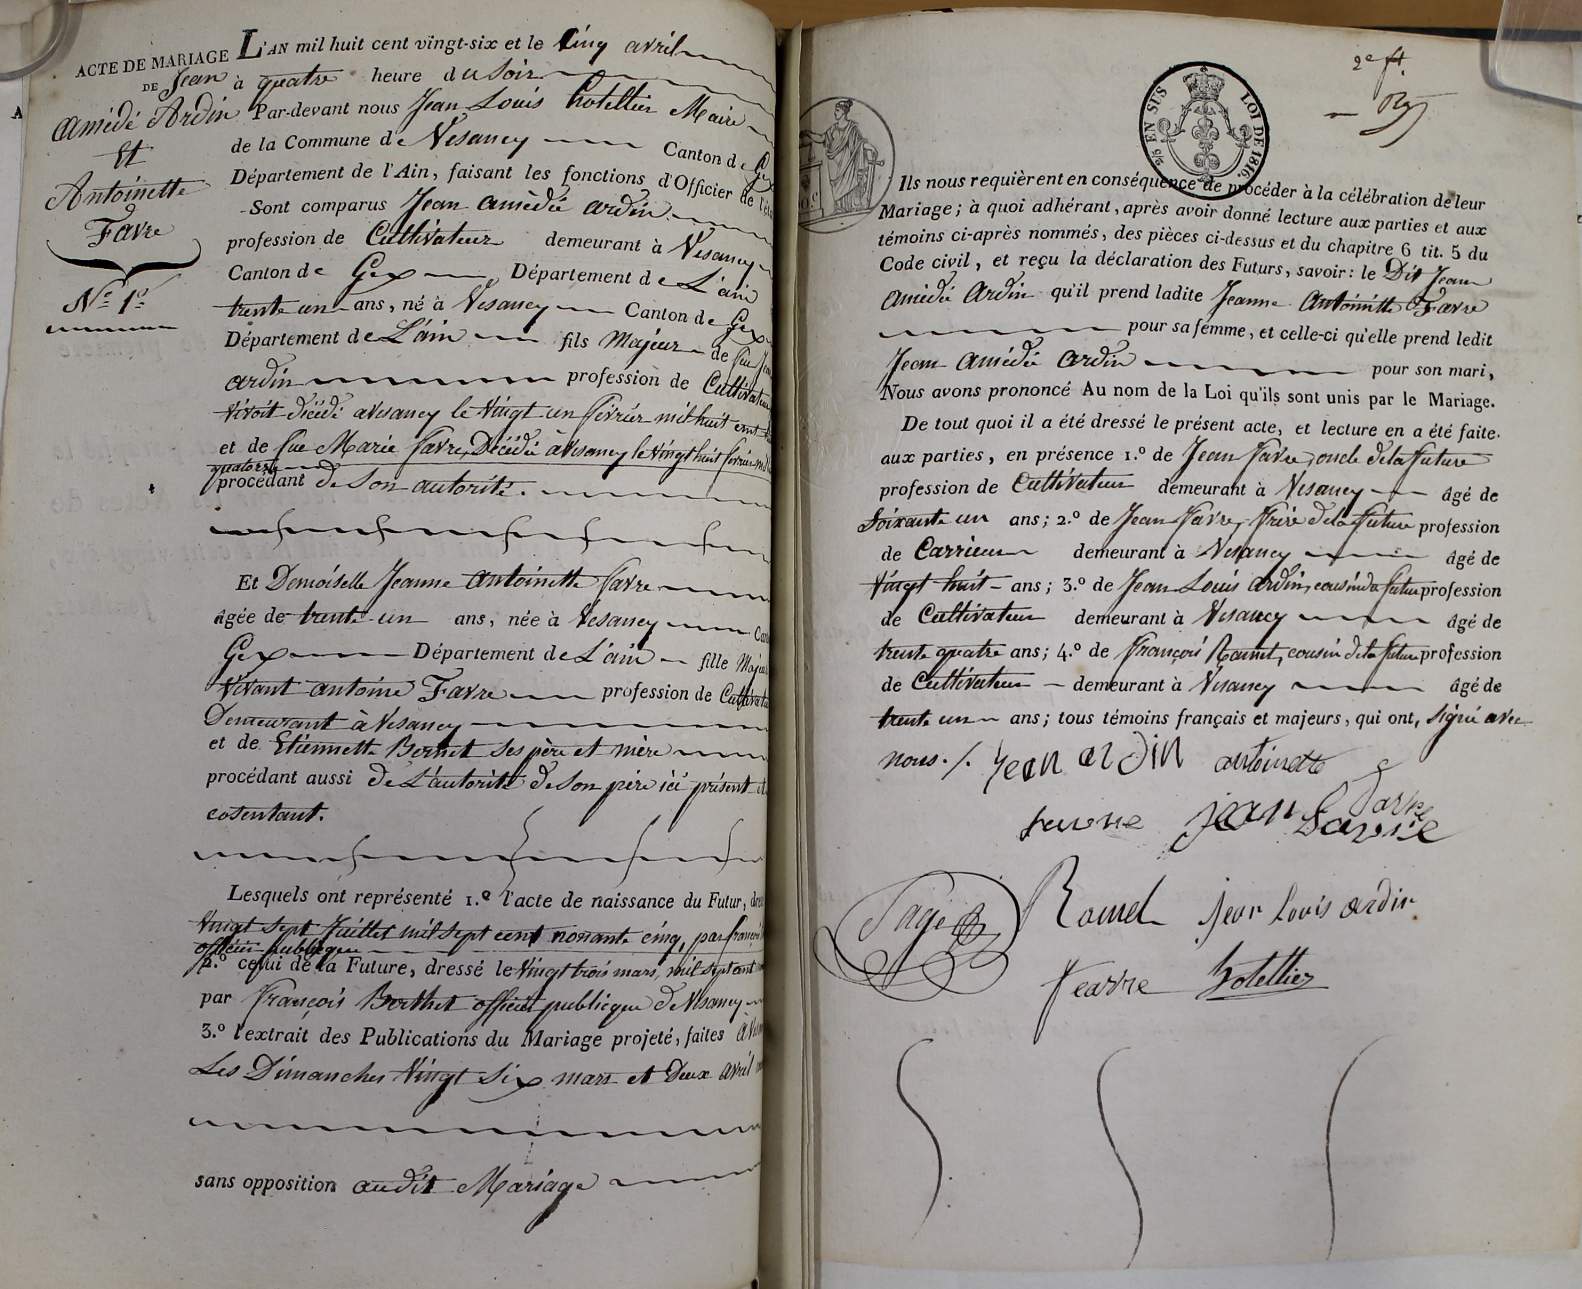 ACTE DE MARIAGE
DE Jean
Amédé Ardin
Et
Antoinette
Favre
N.º 1.er
L'AN mil huit cent vingt-six et le Cinq avril
à quatre heure du Soir
Par-devant nous Jean Louis hotellier Maire
de la Commune de Vesancy Canton de Gex
Département de l'Ain, faisant les fonctions d'Officier de l'éta
Sont comparus Jean amédée ardin
profession de Cultivateur demeurant à Vesancy
Canton de Gex Département de L'ain
trente un ans, né à Vesancy Canton de Gex
Département de L'ain fils Majeur de feu Jean
ardin profession de Cultivateur
vivoit décédé a Vesancy le Vingt un février mil huit cent
et de feue Marie favre, Décédée à Vesancy le Vingt huit février mil
quatorze
procédant de Son autorité.
Et Demoiselle Jeanne antoinette favre
âgée de trente-un ans, née à Vesancy Can
Gex Département de L'ain fille Majeure
Vivant antoine Favre profession de Cultivat
Demeurant à Vesancy
et de Etiennette Bornet Ses père et mère
procédant aussi de L'autorité de Son père ici présent et
cosentant.
Lesquels ont représenté 1.º l'acte de naissance du Futur, dres
Vingt sept Juillet mil sept cent nonante cinq, par françois
officier publique
2.º celui de la Future, dressé le Vingt trois mars, mil sept cent
par François Berthet officier publique de Vesancy
3.º l'extrait des Publications du Mariage projeté, faites à Vesan
Les Dimanches Vingt Six mars et Deux avril
sans opposition audit Mariage
2e ft.
25 EN SUS LOI DE 1816.
Ils nous requièrent en conséquence de procéder à la célébration de leur
Mariage; à quoi adhérant, après avoir donné lecture aux parties et aux
témoins ci-après nommés, des pièces ci-dessus et du chapitre 6 tit. 5 du
Code civil, et reçu la déclaration des Futurs, savoir: le Dit Jean
amédée Ardin qu'il prend ladite Jeanne Antoinette Favre
pour sa femme, et celle-ci qu'elle prend ledit
Jean amédée ardin pour son mari,
Nous avons prononcé Au nom de la Loi qu'ils sont unis par le Mariage.
De tout quoi il a été dressé le présent acte, et lecture en a été faite.
aux parties, en présence 1.º de Jean favre, oncle de la future
profession de Cultivateur demeurant à Vesancy âgé de
Soixante un ans; 2.º de Jean Favre, frère de la future profession
de Carrieur demeurant à Vesancy âgé de
Vingt huit ans; 3.º de Jean Louis ardin, cousin du futur profession
de Cultivateur demeurant à Vesancy âgé de
trente quatre ans; 4.º de François Ramel, cousin de la future profession
de Cultivateur demeurant à Vesancy âgé de
trente un ans; tous témoins français et majeurs, qui ont, signé avec
nous./. jean ardin antoinette
favre jean favre
Ramel jean louis ardin
favre hotellier